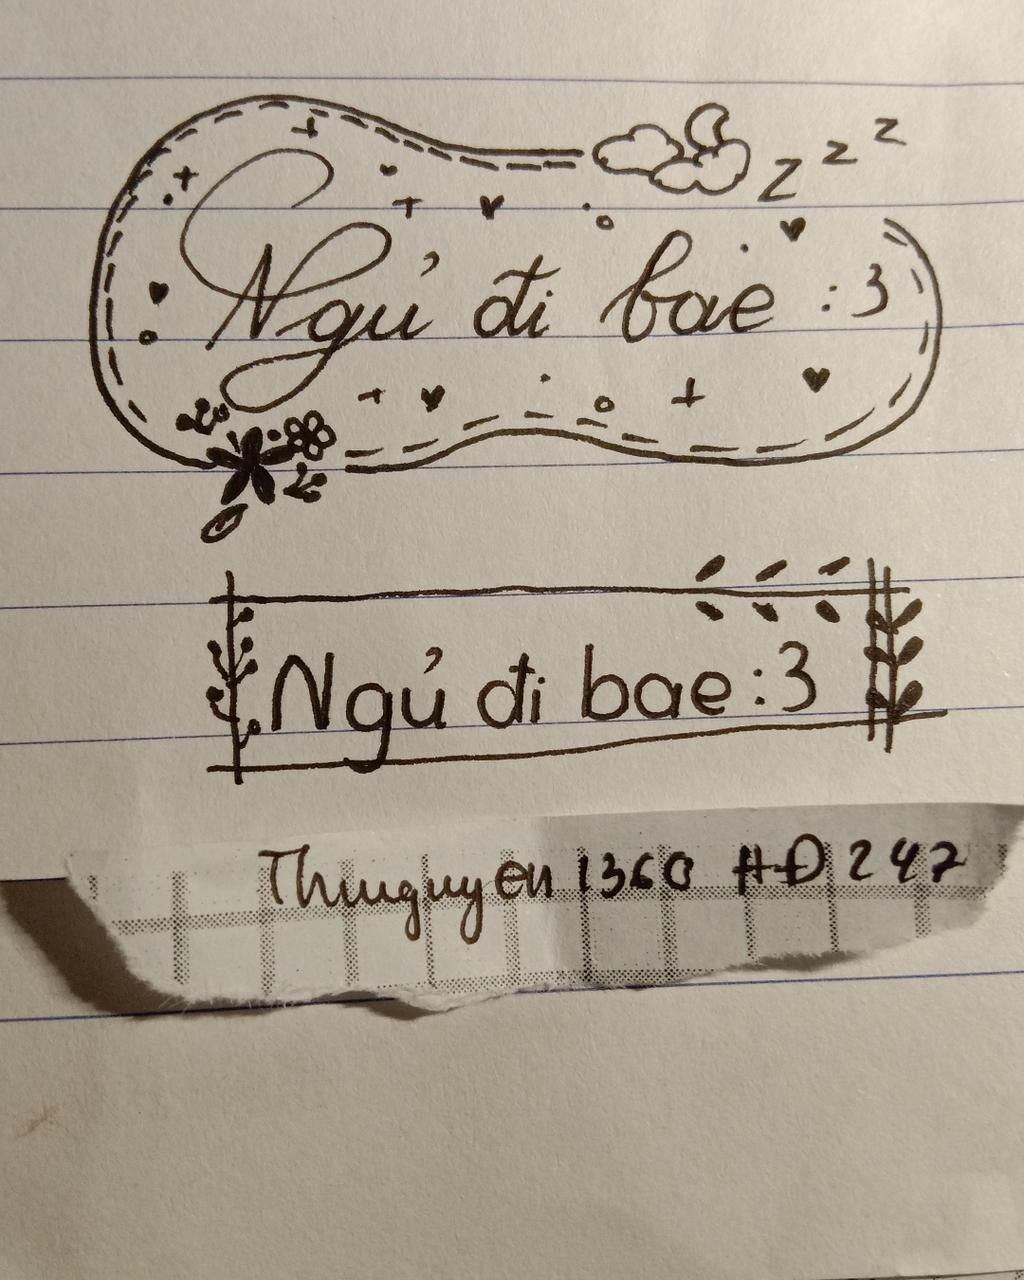 z z z
Ngủ đi bae :3
Ngủ đi bae :3
Thuguyen 1360 HĐ 247